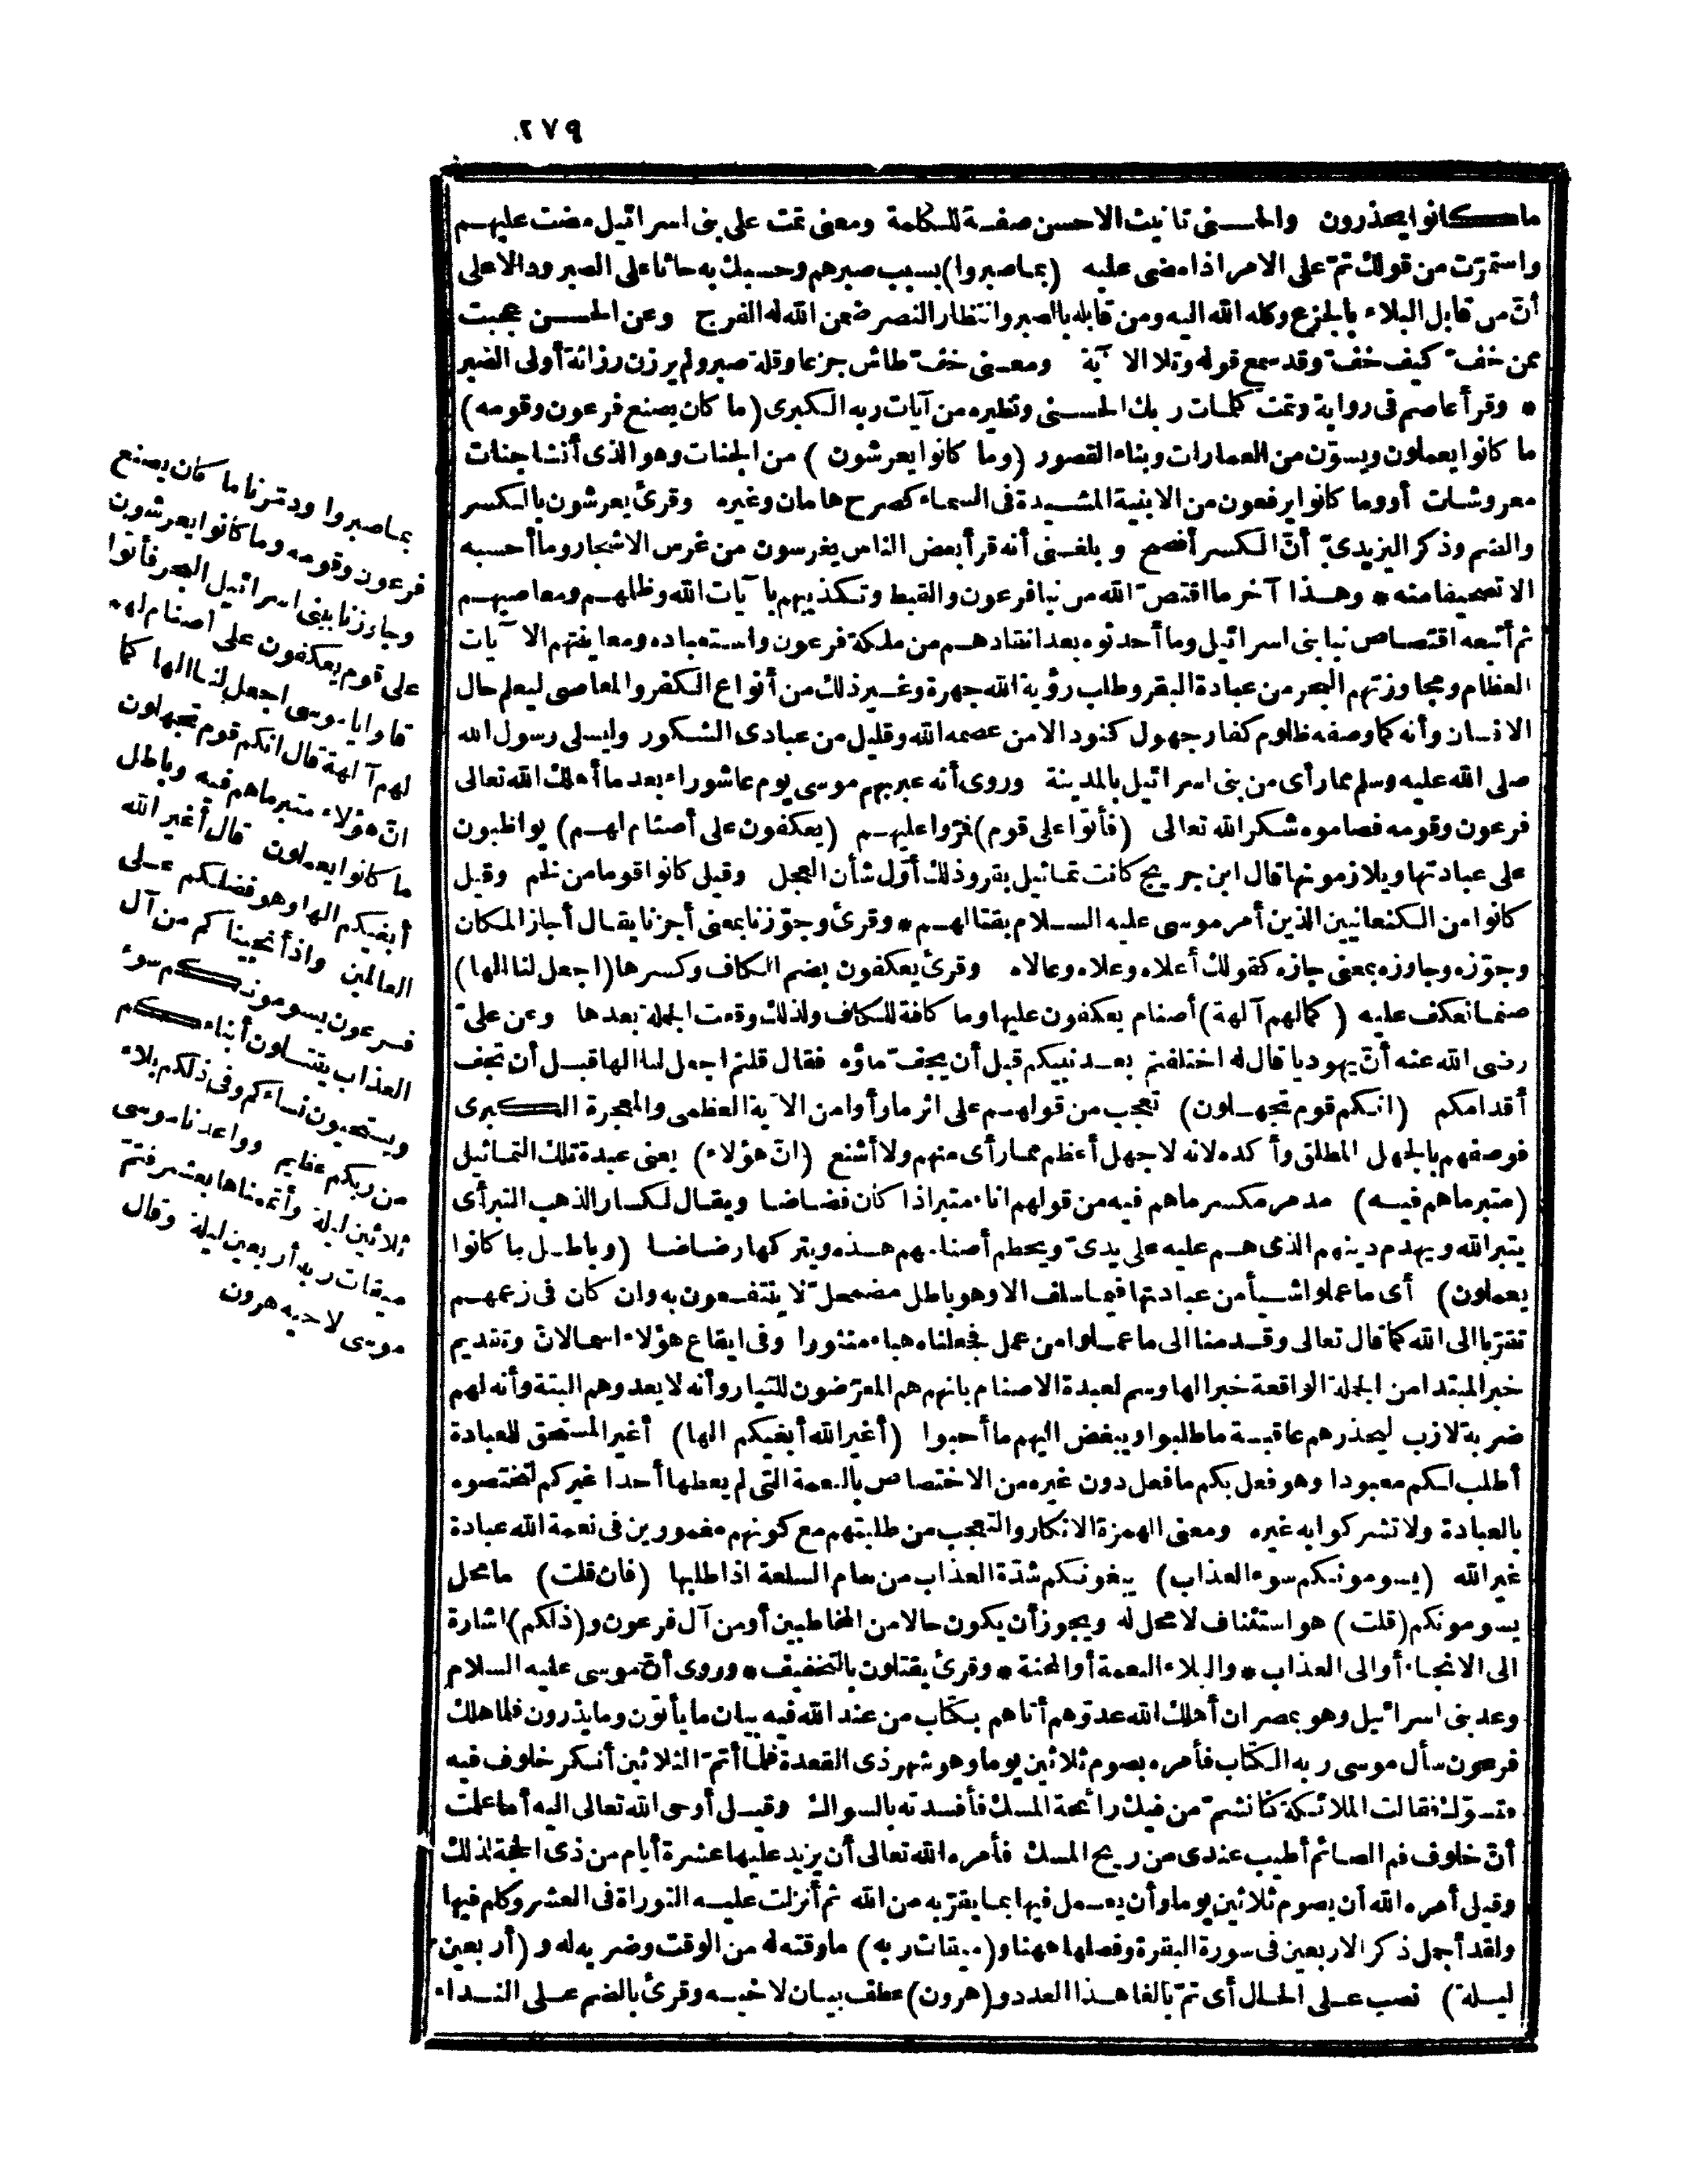 ٢٧٩
ما كانوا يحذرون والحسنى تأنيث الاحسن صفة للكلمة ومعنى تمت على بنى اسرائيل مضت عليهم
واستمرّت من قولك تمّ على الامر اذا مضى عليه (بما صبروا) بسبب صبرهم وحسبك به حاثا على الصبر ودالا على
أنّ من قابل البلاء بالجزع وكله الله اليه ومن قابله بالصبر وانتظار النصر ضمن الله له الفرج وعن الحسن عجبت
ممن خفّ كيف خفّ وقد سمع قوله وتلا الآية ومعنى خفّ طاش جزعا وقلة صبر ولم يرزن رزانة أولى الصبر
* وقرأ عاصم فى رواية وتمت كلمات ربك الحسنى ونظيره من آيات ربه الكبرى (ما كان يصنع فرعون وقومه)
ما كانوا يعملون ويسوّن من العمارات وبناء القصور (وما كانوا يعرشون) من الجنات وهو الذى أنشا جنات
معروشات أو وما كانوا يرفعون من الابنية المشيدة فى السماء كصرح هامان وغيره وقرئ يعرشون بالكسر
والضم وذكر اليزيدىّ أنّ الكسر أفصح وبلغنى أنه قرأ بعض الناس يغرسون من غرس الاشجار وما أحسبه
الا تصحيفا منه * وهذا آخر ما اقتصّ الله من نبا فرعون والقبط وتكذيبهم بآيات الله وظلمهم ومعاصيهم
ثم أتبعه اقتصاص نبا بنى اسرائيل وما أحدثوه بعد انقاذهم من ملكة فرعون واستعباده ومعاينتهم الآيات
العظام ومجاوزتهم البحر من عبادة البقر وطلب رؤية الله جهرة وغير ذلك من أنواع الكفر والمعاصى ليعلم حال
الانسان وأنه كما وصفه ظلوم كفار جهول كنود الا من عصمه الله وقليل من عبادى الشكور وليسلى رسول الله
صلى الله عليه وسلم مما رأى من بنى اسرائيل بالمدينة وروى أنه عبر بهم موسى يوم عاشوراء بعد ما أهلك الله تعالى
فرعون وقومه فصاموه شكر الله تعالى (فأتوا على قوم) فمرّوا عليهم (يعكفون على أصنام لهم) يواظبون
على عبادتها ويلازمونها قال ابن جريج كانت تماثيل بقر وذلك أوّل شأن العجل وقيل كانوا قوما من لخم وقيل
كانوا من الكنعانيين الذين أمر موسى عليه السلام بقتالهم * وقرئ وجوّزنا بمعنى أجزنا يقال أجاز المكان
وجوّزه وجاوزه بمعنى جازه كقولك أعلاه وعلاه وعالاه وقرئ يعكفون بضم الكاف وكسرها (اجعل لنا الها)
صنما نعكف عليه (كما لهم آلهة) أصنام يعكفون عليها وما كافة للكاف ولذلك وقعت الجملة بعدها وعن علىّ
رضى الله عنه أنّ يهوديا قال له اختلفتم بعد نبيكم قبل أن يجفّ ماؤه فقال قلتم اجعل لنا الها قبل أن تجف
أقدامكم (انكم قوم تجهلون) تعجب من قولهم على اثر ما رأوا من الآية العظمى والمعجزة الكبرى
فوصفهم بالجهل المطلق وأكده لانه لا جهل أعظم مما رأى منهم ولا أشنع (انّ هؤلاء) يعنى عبدة تلك التماثيل
(متبر ما هم فيه) مدمر مكسر ما هم فيه من قولهم اناء متبر اذا كان فضاضا ويقال لكسار الذهب التبر أى
يتبر الله ويهدم دينهم الذى هم عليه على يدىّ ويحطم أصنامهم هذه ويتركها رضاضا (وباطل ما كانوا
يعملون) أى ما عملوا شيأ من عبادتها فيما سلف الا وهو باطل مضمحلّ لا ينتفعون به وان كان فى زعمهم
تقرّبا الى الله كما قال تعالى وقدمنا الى ما عملوا من عمل فجعلناه هباء منثورا وفى ايقاع هؤلاء اسما لانّ وتقديم
خبر المبتدا من الجملة الواقعة خبرا لها وسم لعبدة الاصنام بانهم هم المعرّضون للتبار وأنه لا يعدوهم البتة وأنه لهم
ضربة لازب ليحذرهم عاقبة ما طلبوا ويبغض اليهم ما أحبوا (أغير الله أبغيكم الها) أغير المستحق للعبادة
أطلب لكم معبودا وهو فعل بكم ما فعل دون غيره من الاختصاص بالنعمة التى لم يعطها أحدا غيركم لتختصوه
بالعبادة ولا تشركوا به غيره ومعنى الهمزة الانكار والتعجب من طلبتهم مع كونهم مغمورين فى نعمة الله عبادة
غير الله (يسومونكم سوء العذاب) يبغونكم شدّة العذاب من سام السلعة اذا طلبها (فان قلت) ما محل
يسومونكم (قلت) هو استئناف لا محل له ويجوز أن يكون حالا من المخاطبين أو من آل فرعون و(ذلكم) اشارة
الى الانجاء أو الى العذاب * والبلاء النعمة أو المحنة * وقرئ يقتلون بالتخفيف * وروى أنّ موسى عليه السلام
وعد بنى اسرائيل وهو بمصر ان أهلك الله عدوّهم أتاهم بكتاب من عند الله فيه بيان ما يأتون وما يذرون فلما هلك
فرعون سأل موسى ربه الكتاب فأمره بصوم ثلاثين يوما وهو شهر ذى القعدة فلما أتمّ الثلاثين أنكر خلوف فيه
فتسوّك فقالت الملائكة كنا نشمّ من فيك رائحة المسك فأفسدته بالسواك وقيل أوحى الله تعالى اليه أما علمت
أنّ خلوف فم الصائم أطيب عندى من ريح المسك فأمره الله تعالى أن يزيد عليها عشرة أيام من ذى الحجة لذلك
وقيل أمره الله أن يصوم ثلاثين يوما وأن يعمل فيها بما يقرّبه من الله ثم أنزلت عليه التوراة فى العشر وكلم فيها
ولقد أجمل ذكر الاربعين فى سورة البقرة وفصلها ههنا و(ميقات ربه) ما وقته له من الوقت وضربه له و(أربعين
ليلة) نصب على الحال أى تمّ بالغا هذا العدد و(هرون) عطف بيان لاخيه وقرئ بالضم على النداء
بما صبروا ودمّرنا ما كان يصنع
فرعون وقومه وما كانوا يعرشون
وجاوزنا ببنى اسرائيل البحر فأتوا
على قوم يعكفون على أصنام لهم
قالوا يا موسى اجعل لنا الها كما
لهم آلهة قال انكم قوم تجهلون
انّ هؤلاء متبر ما هم فيه وباطل
ما كانوا يعملون قال أغير الله
أبغيكم الها وهو فضلكم على
العالمين واذ أنجيناكم من آل
فرعون يسومونكم سوء
العذاب يقتلون أبناءكم
ويستحيون نساءكم وفى ذلكم بلاء
من ربكم عظيم وواعدنا موسى
ثلاثين ليلة وأتممناها بعشر فتمّ
ميقات ربه أربعين ليلة وقال
موسى لاخيه هرون